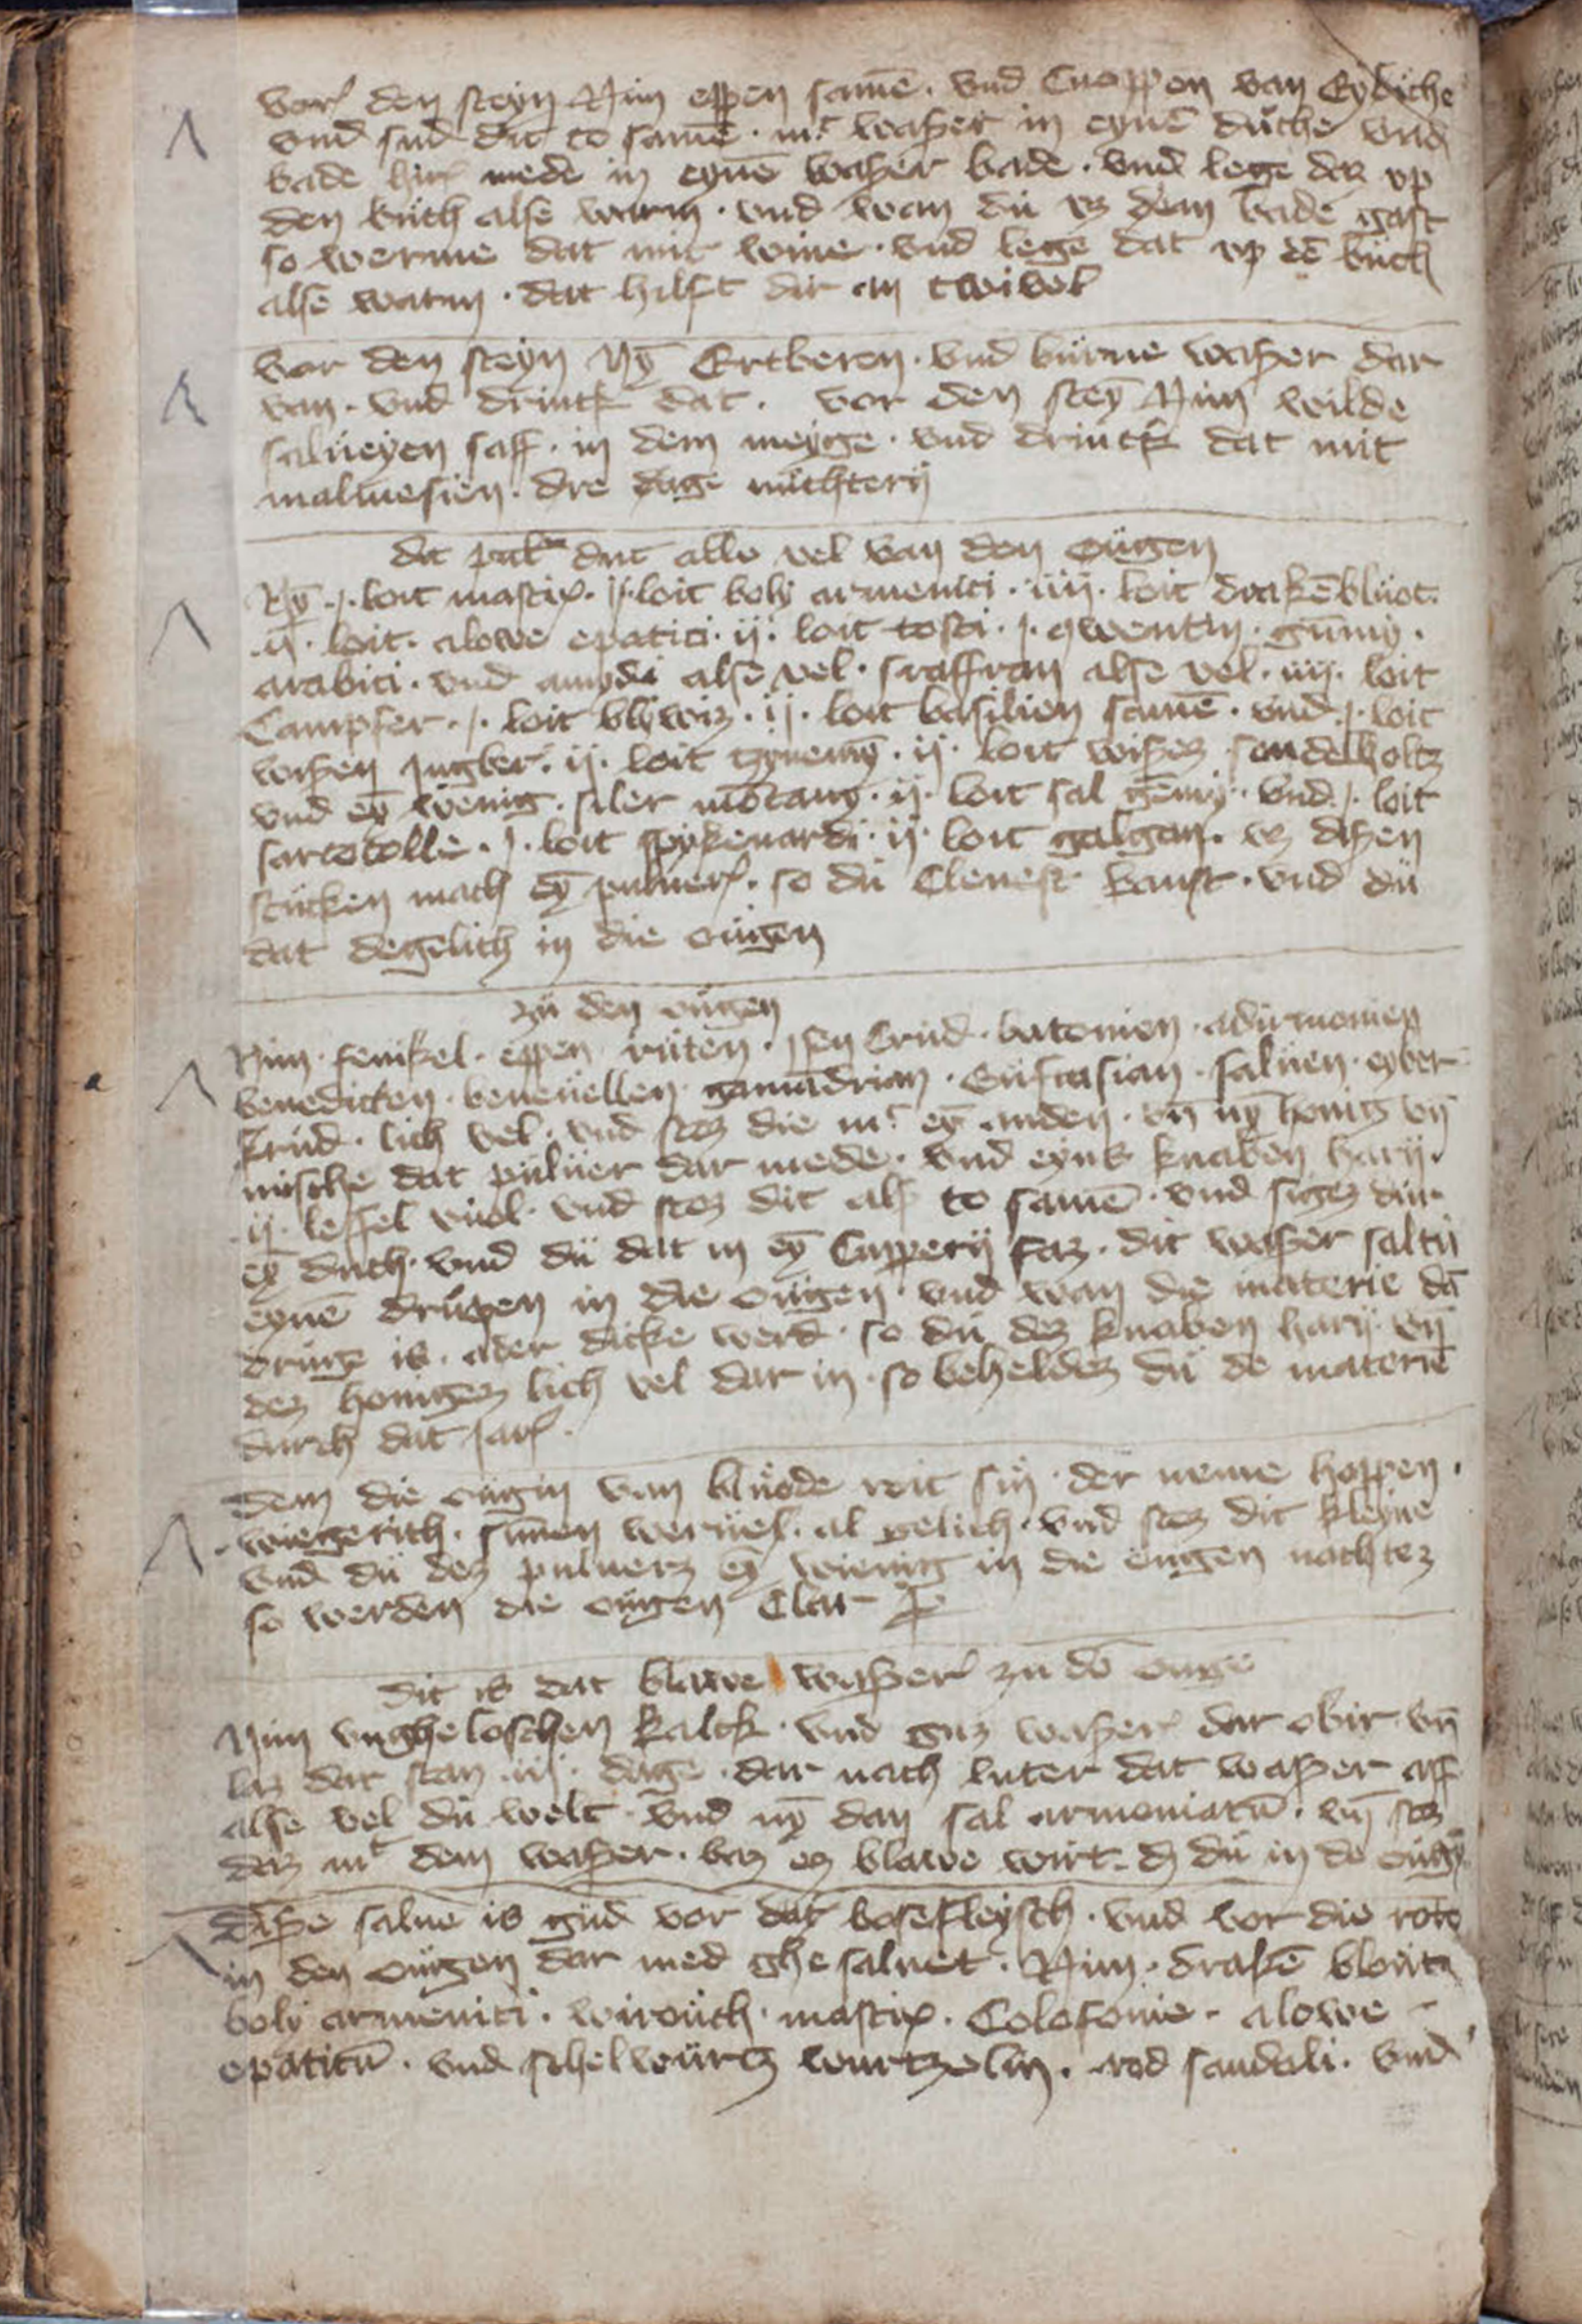 vor den steyn Nim eppen samē · vnd Cnoppen van Eydiche
vnd sud dit to samē · mt waßer in eynē düche vnd
bade hir mede in eynē waßer bade · vnd lege daz vp
den büch alse warm · vnd wan dü vz dem bade gast
so werme dat mit wine · vnd lege dat vp dē büch
alse warm · dat hilft dir an twivel
vor den steyn Nȳ Ertberen · vnd bürne waßer dar
van · vnd drinck dat · vor den steȳ Nim wilde
salüeyen saff · in dem meyge · vnd drinck dat mit
maluesien · dre dage nüchterij
dit pulūr dut alle vel van den oügen
Nȳ · j · loit mastix · j · loit boly armenici · iiij · loit drakēblüot ·
ij · loit · alowe epatici · ij · loit tosti · j · qwentin · gūmij ·
arabici · vnd amydi alse vel · saffran alse vel · iiij · loit
Campfer · j · loit blywiz · ij · loit basilien samē · vnd · j · loit
wißen Jngber · ij · loit tzynemȳ · ij · loit wißez sandelholtz
vnd eȳ wenig · siler mōtany · ij · loit sal gēmij · vnd · j · loit
sarcocolle · j · loit spykenardi · ij · loit galgan · vz dißen
stücken mach eȳ puluer · so dü Clenest kanst · vnd dü
dat degelich in die oügen
zü den oügen
Nim · fenikel · eppen rüten · Jsen Crüd · batonien · adürmonien
benedicten · beneüellen · gamādrian · Eüfrasian · salüen · eyber
krüd · lich vel · vnd stoz die mt eȳ anden · vn̄ nȳ honig vn̄
mische dat pülüer dar mede · vnd eynß knaben harij ·
ij · leffel vüol · vnd stoz dit alß to samē · vnd sigez dür
eȳ düch · vnd dü dat in eȳ Cupperij faz · dit waßer saltü
eynē drüpen in die oügen · vnd wan die materie dā
drüge is · ader dicke werd · so dü dez knaben harij vn̄
dez honigez lich vel dar in · so beheldez dü de materie
durch dat Jar ·
dem die oügin van blüode roit sin · der neme hoppen ·
wegerich · sinen werüel · al gelich · vnd stoz dit kleyne
vnd dü dez puluerz eȳ wienig in die oügen nachtez
so werden die oügen Clar
dit is dat blawe waßer zu dē ouge
Nim vngheloschen kalck · vnd guz waßer dar obir vn̄
laz dat stan · iij · dage · dar nach luter dat waßer aff
alse vel dü welt · vnd nȳ dan sal armoniacū · vn̄ stoz
daz mt dem waßer · baz ez blawe wirt · dz dü in de oügȳ
diße salue is güd vor dat bosefleysch · vnd vor die rote
in den oügen dar med ghe saluet · Nim · drakē bloüt
boly armenici · wirouch · mastix · Colofonie · alowe
epaticū · vnd schelwürtz wurtzelin · rod sandali · vnd